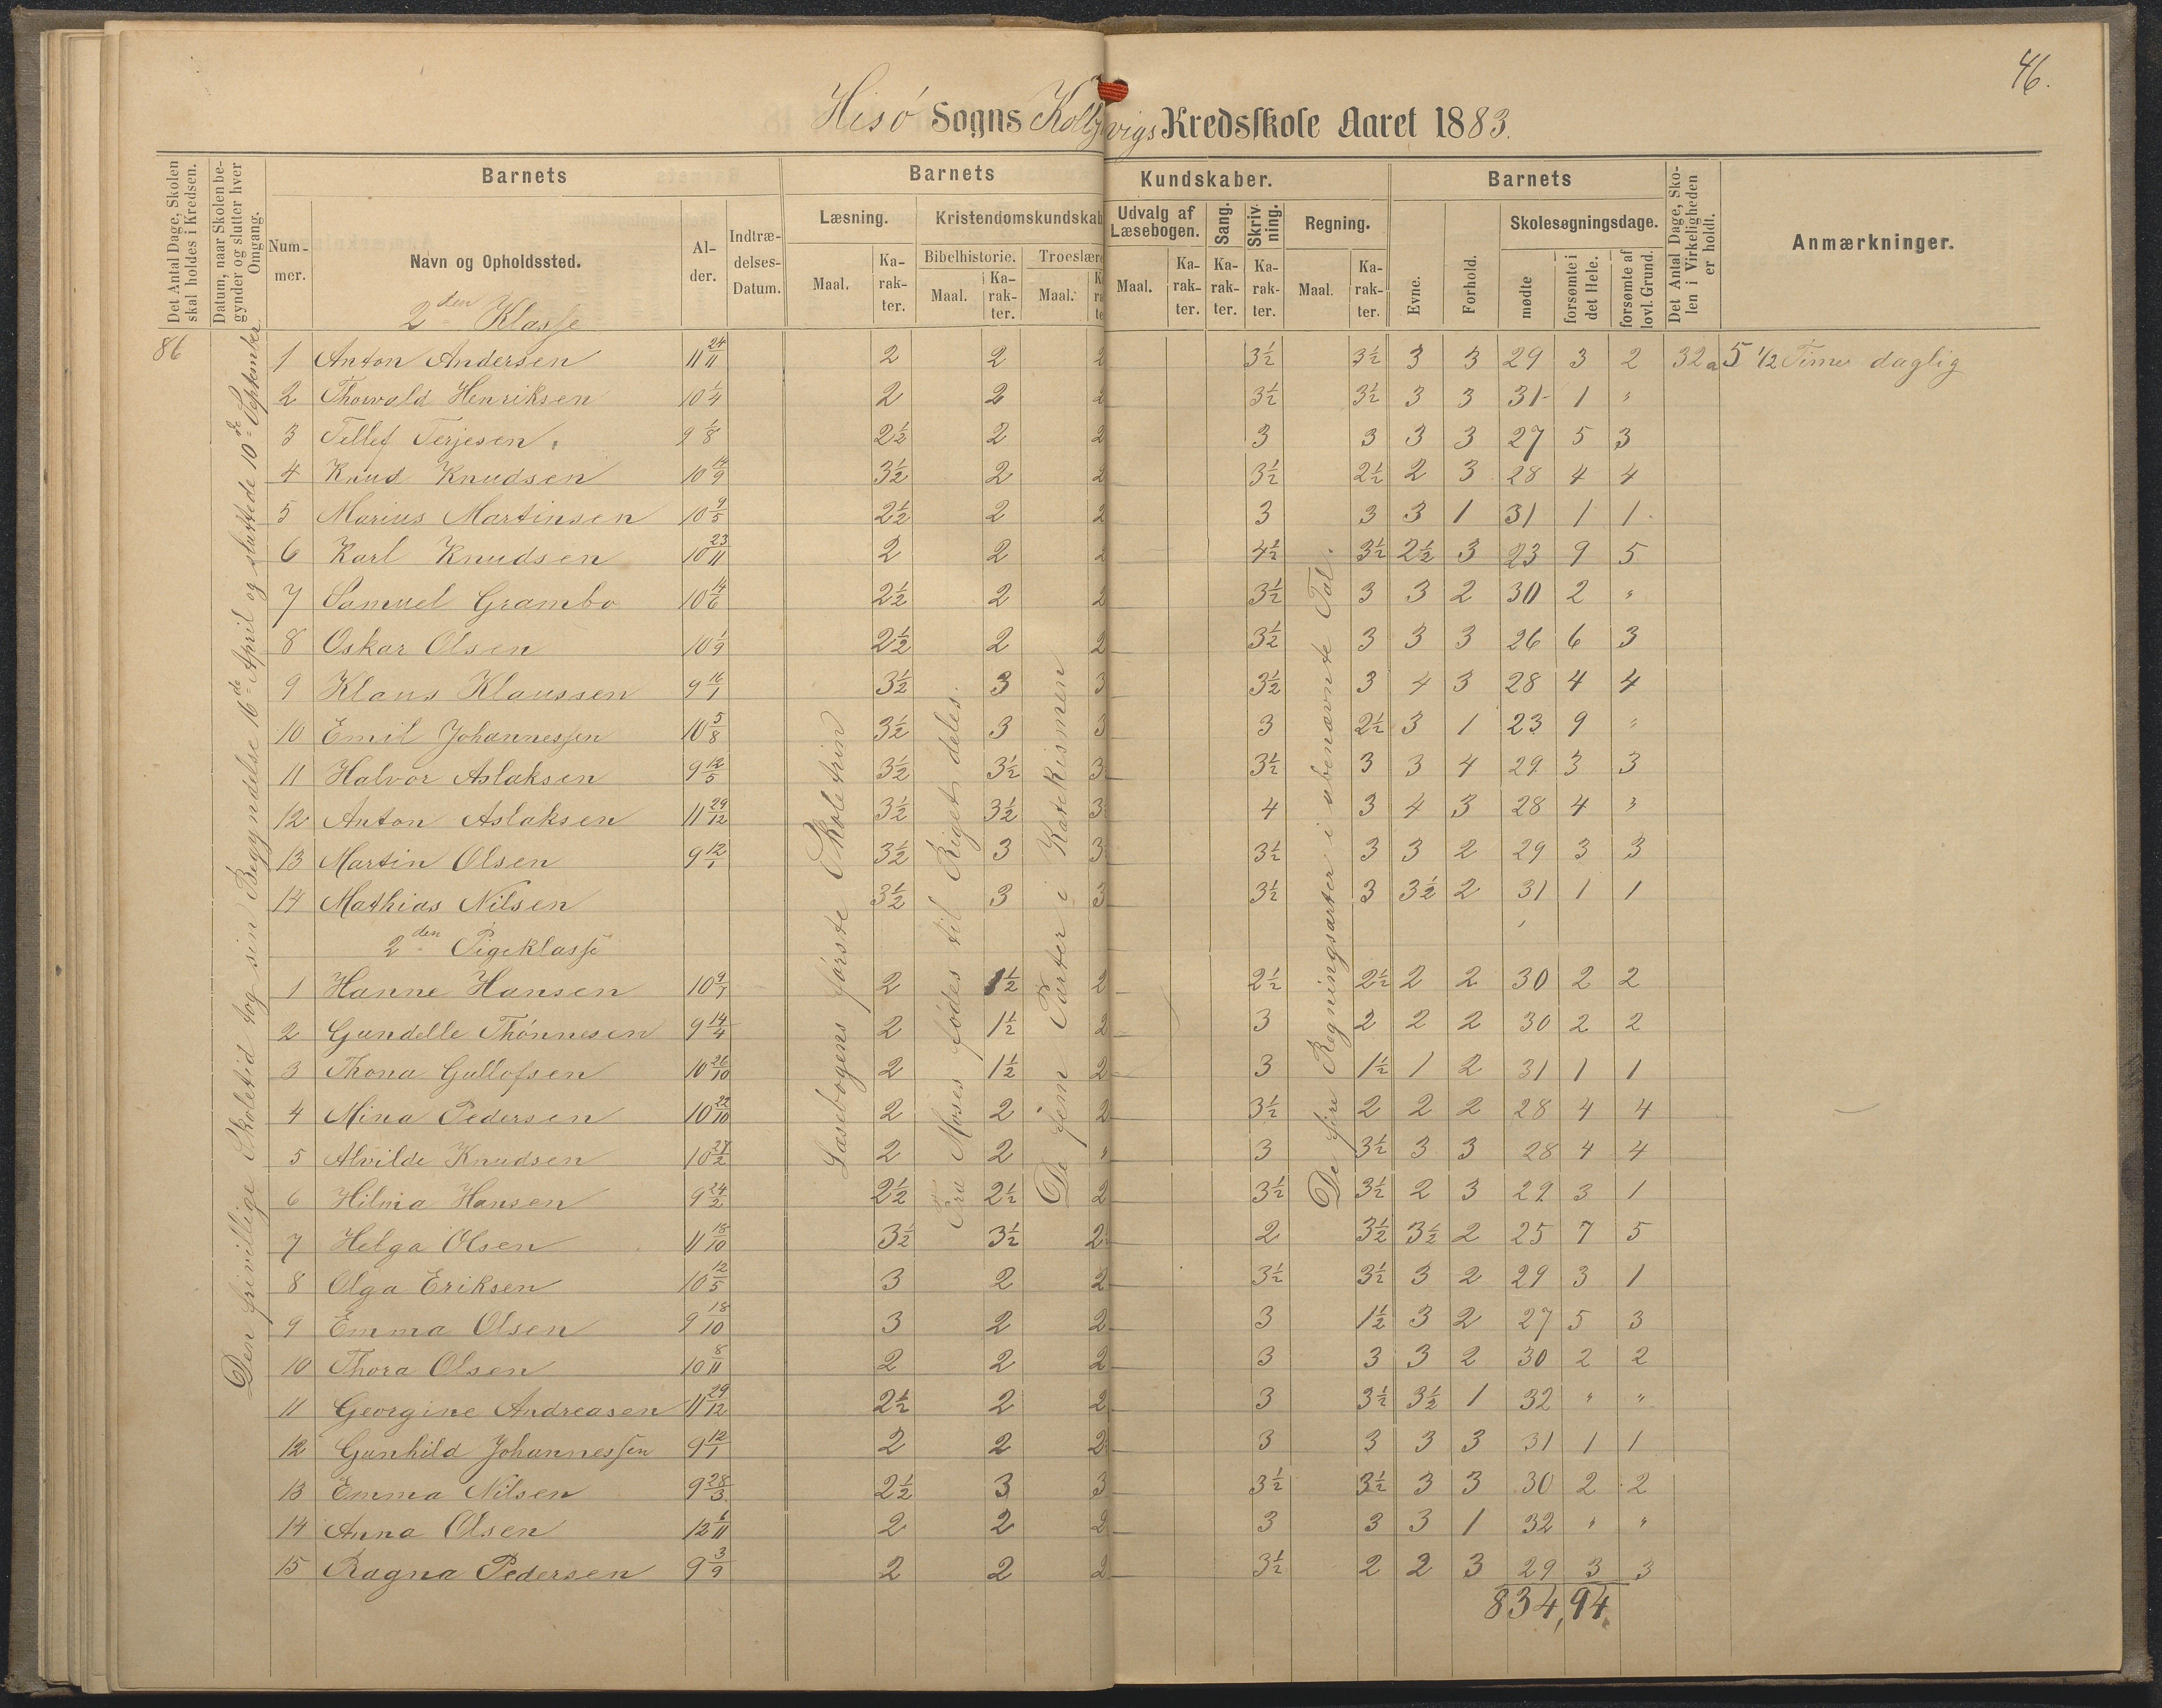 46.
Hisö Sogns Kolbjvigs Kredsskole Aaret 1883.
Det Antal Dage, Skolen skal holdes i Kredsen.
Datum, naar Skolen begynder og slutter hver Omgang.
Barnets
Nummer.
Navn og Opholdssted.
Alder.
Indtrædelses-Datum.
Barnets Kundskaber.
Læsning.
Maal.
Karakter.
Kristendomskundskab
Bibelhistorie.
Maal.
Karakter.
Troeslære
Maal.
Udvalg af Læsebogen.
Maal.
Karakter.
Sang.
Karakter.
Skrivning.
Karakter.
Regning.
Maal.
Karakter.
Barnets
Evne.
Forhold.
Skolesøgningsdage.
mødte
forsømte i det Hele.
forsømte af lovl. Grund.
Det Antal Dage, Skolen i Virkeligheden er holdt.
Anmærkninger.
2den Klasse
86
Den frivillige Skoletid tog sin Begyndelse 16de April og sluttede 10de September.
Læsebogens første Skoletrin
Fra Moses fødes til Riget deles.
De fem Parter i Katekismen
De fire Regningsarter i ubenævnte Tal.
1 Anton Andersen 11 24/11 2 2 2 3½ 3½ 3 3 29 3 2 32 a 5 1/2 Timer daglig
2 Thorvald Henriksen 10 1/4 2 2 2 3½ 3½ 3 3 31 1 "
3 Tellef Terjesen 9 1/8 2½ 2 2 3 3 3 3 27 5 3
4 Knud Knudsen 10 14/9 3½ 2 2 3½ 2½ 2 3 28 4 4
5 Marius Martinsen 10 9/5 2½ 2 2 3 3 3 1 31 1 1
6 Karl Knudsen 10 23/11 2 2 2 4½ 3½ 2½ 3 23 9 5
7 Samuel Grambo 10 14/6 2½ 2 2 3½ 3 3 2 30 2 "
8 Oskar Olsen 10 1/9 2½ 2 2 3½ 3 3 3 26 6 3
9 Klaus Klaussen 9 16/1 3½ 3 3 3½ 3 4 3 28 4 4
10 Emil Johannessen 10 5/8 3½ 3 3 3 2½ 3 1 23 9 "
11 Halvor Aslaksen 9 12/5 3½ 3½ 3 3½ 3 3 4 29 3 3
12 Anton Aslaksen 11 29/12 3½ 3½ 3 4 3 4 3 28 4 3
13 Martin Olsen 9 12/1 3½ 3 3 3½ 3 3 2 29 3 3
14 Mathias Nilsen 3½ 3 3 3½ 3 3½ 2 31 1 1
2den Pigeklasse
1 Hanne Hansen 10 9/7 2 1½ 2 2½ 2½ 2 2 30 2 2
2 Gundelle Thönnesen 9 14/4 2 1½ 2 3 2 2 2 30 2 2
3 Thona Gullofsen 10 26/10 2 1½ 2 3 1½ 1 2 31 1 1
4 Mina Pedersen 10 22/10 2 2 2 3½ 2 2 2 28 4 4
5 Alvilde Knudsen 10 27/2 2 2 " 3 3½ 3 3 28 4 4
6 Hilma Hansen 9 24/2 2½ 2½ 2 3½ 3½ 2 3 29 3 1
7 Helga Olsen 11 18/10 3½ 3½ 2 2 3½ 3½ 2 25 7 5
8 Olga Eriksen 10 12/5 3 2 2 3½ 3½ 3 2 29 3 1
9 Emma Olsen 9 18/10 3 2 2 3 1½ 3 2 27 5 3
10 Thora Olsen 10 8/11 2 2 2 3 3 3 2 30 2 2
11 Georgine Andreasen 11 29/12 2½ 2 2 3 3½ 3½ 1 32 " "
12 Gunhild Johannessen 9 12/1 2 2 2 3 3 3 3 31 1 1
13 Emma Nilsen 9 28/3 2½ 3 3 3½ 3½ 3 3 30 2 2
14 Anna Olsen 12 6/11 2 2 2 3 3 3 1 32 " "
15 Ragna Pedersen 9 3/9 2 2 2 3½ 2 2 3 29 3 3
834, 94